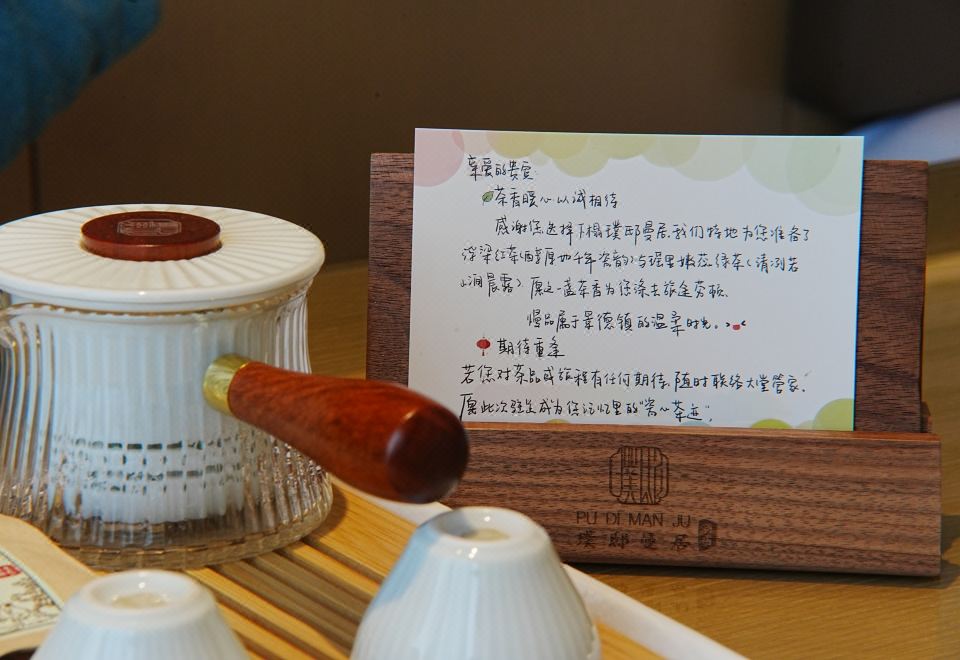 亲爱的贵宾:
茶香暖心 以诚相待
感谢您选择下榻璞邸曼居,我们特地为您准备了
浮梁红茶(醇厚如千年瓷韵)与瑶里嫩蕊绿茶(清冽若
山涧晨露),愿这一盏茶香为您涤去旅途劳顿、
慢品属于景德镇的温柔时光。
期待重逢
若您对茶品或旅程有任何期待,随时联络大堂管家。
愿此次驻足成为您记忆里的"瓷心茶迹",
璞邸
PU DI MAN JU
璞邸曼居